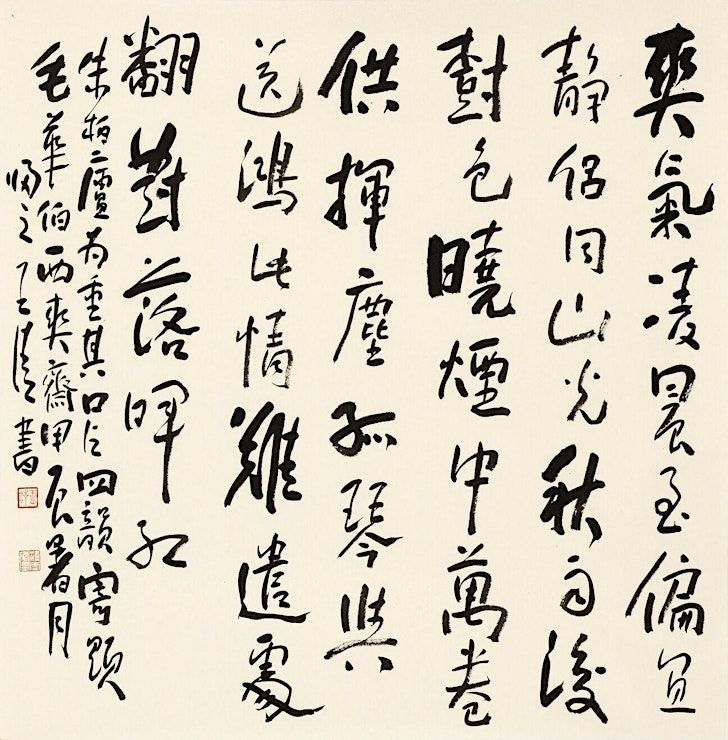 爽氣凌晨至偏宜
静侣同山光秋雨後
樹色曉煙中萬卷
供揮麈孤琴與
送鴻此情難遣處
翻對落暉紅
朱柏廬為重其口占四韻寄題
毛華伯西爽齋甲辰暑月
歸之王書